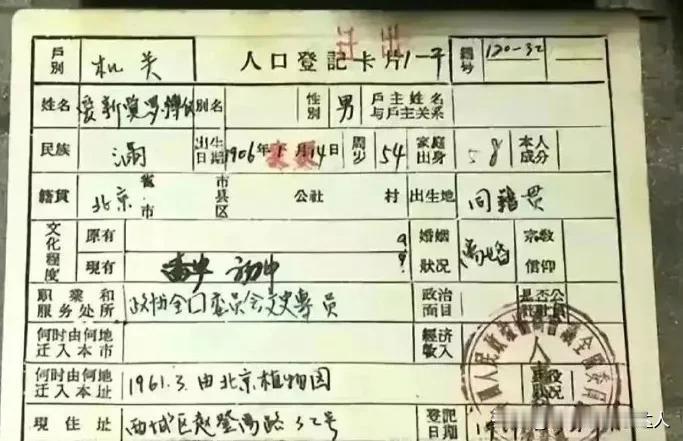 迁出
戶別 机关 人口登記卡片1-平 編号 120-32
姓名 爱新觉罗 別名 性別 男 戶主姓名与戶主关系
民族 满 出生日期 1906年 月14日 周岁 54 家庭出身 本人成分
籍貫 北京 省市 市县区 公社 村 出生地 同籍贯
文化程度 原有 婚姻狀况 离婚 宗敎信仰
現有 初中
职業和服务处所 政协全口委员会文史專员 政治面目 是否公社社員
何时由何地迁入本市 經济收入
何时由何地迁入本址 1961.3.由北京植物园
現住址 西城区赵登禹路32号 登記日期